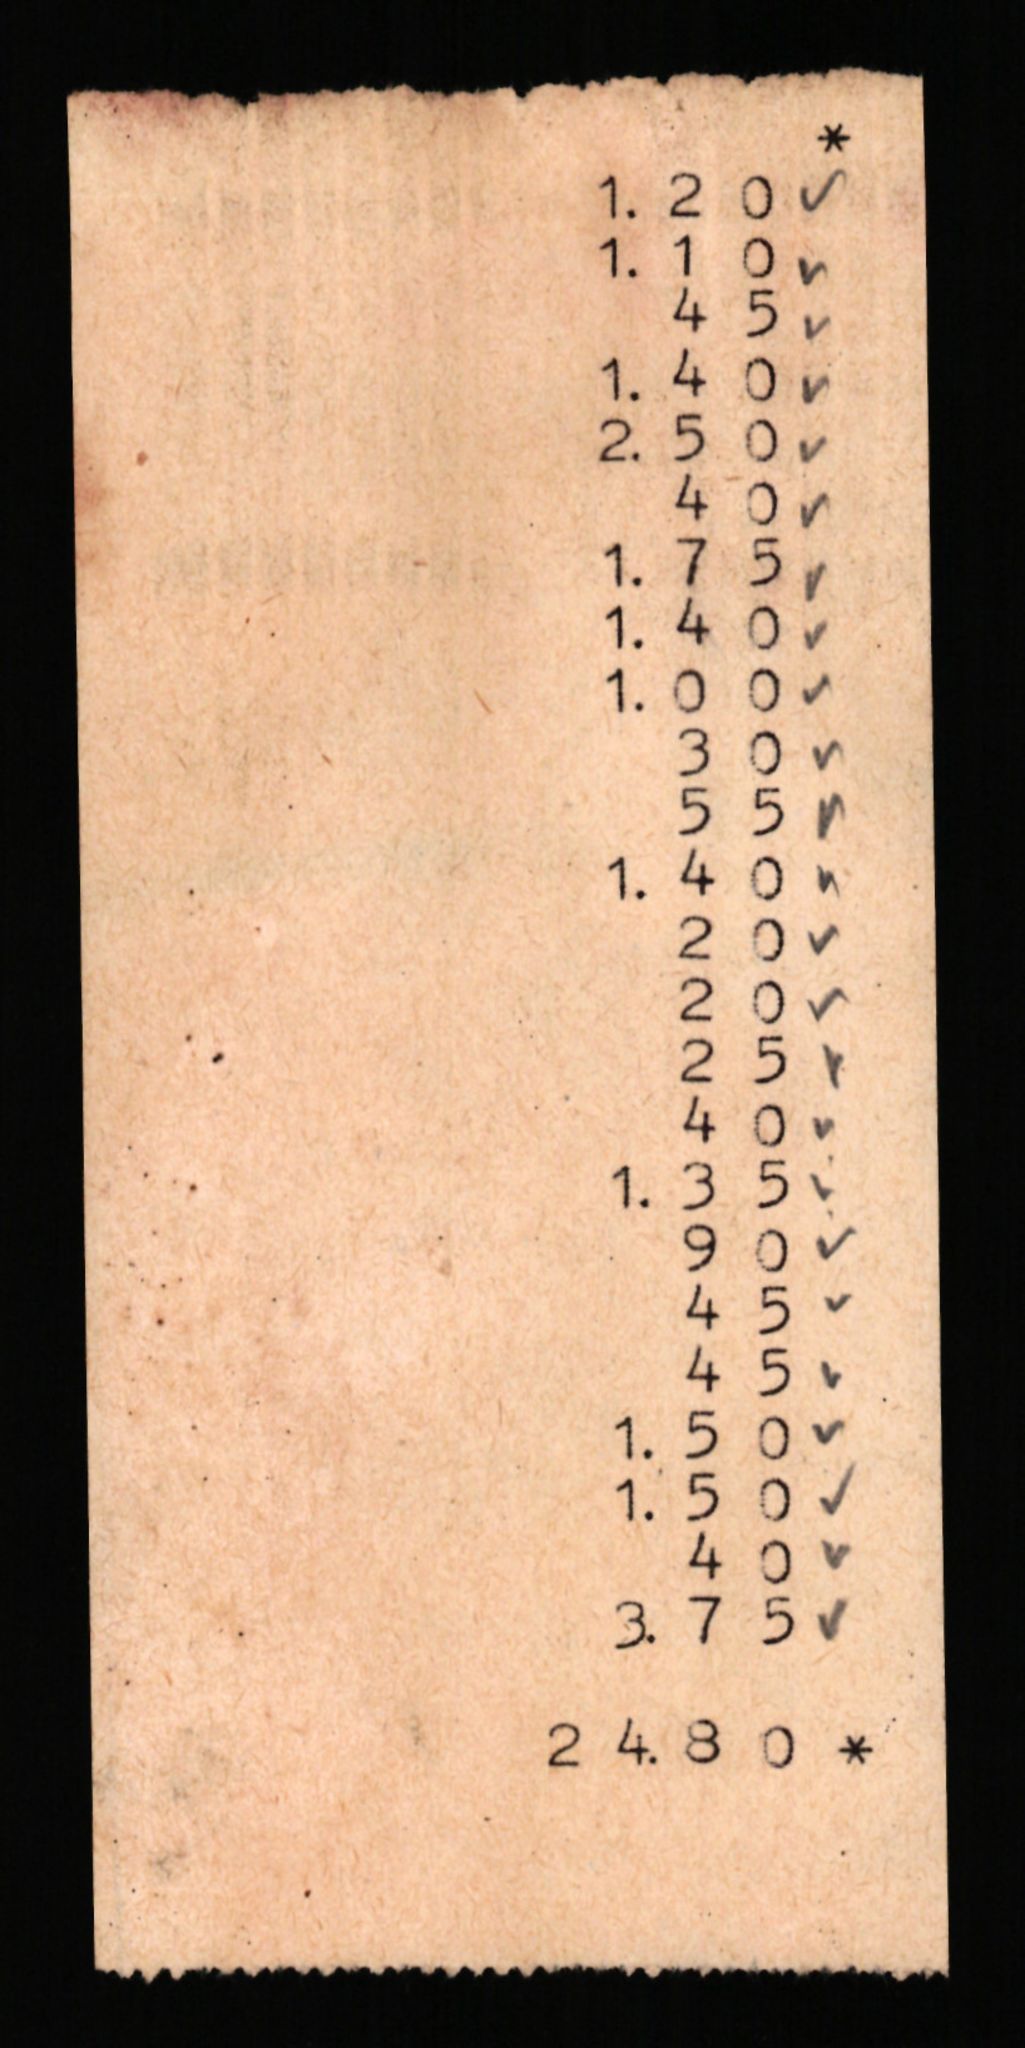 *
1.20 ✓
1.10 ✓
45 ✓
1.40 ✓
2.50 ✓
40 ✓
1.75 ✓
1.40 ✓
1.00 ✓
30 ✓
55 ✓
1.40 ✓
20 ✓
20 ✓
25 ✓
40 ✓
1.35 ✓
90 ✓
45 ✓
45 ✓
1.50 ✓
1.50 ✓
40 ✓
3.75 ✓
24.80 *